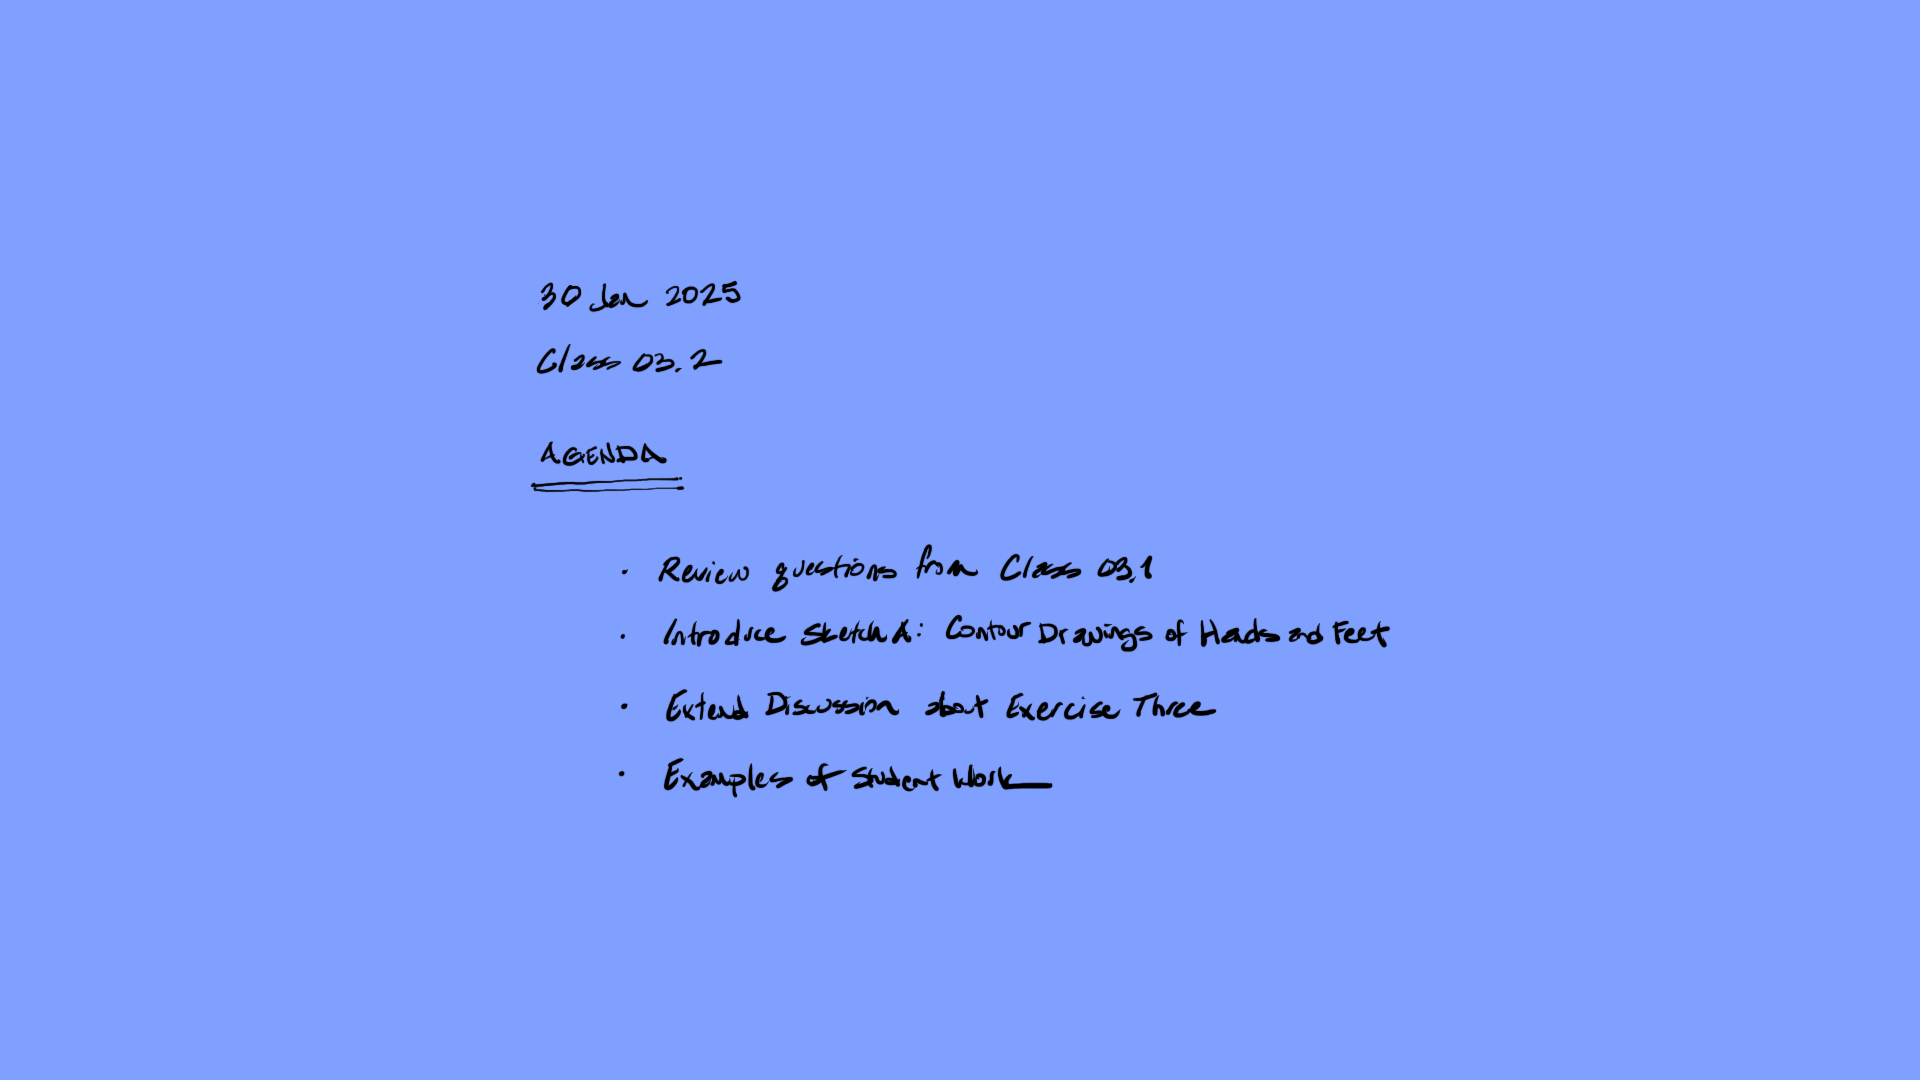 30 Jan 2025
Class 03.2
AGENDA
· Review questions from Class 03.1
· Introduce Sketch A: Contour Drawings of Hands and Feet
· Extend Discussion about Exercise Three
· Examples of Student Work